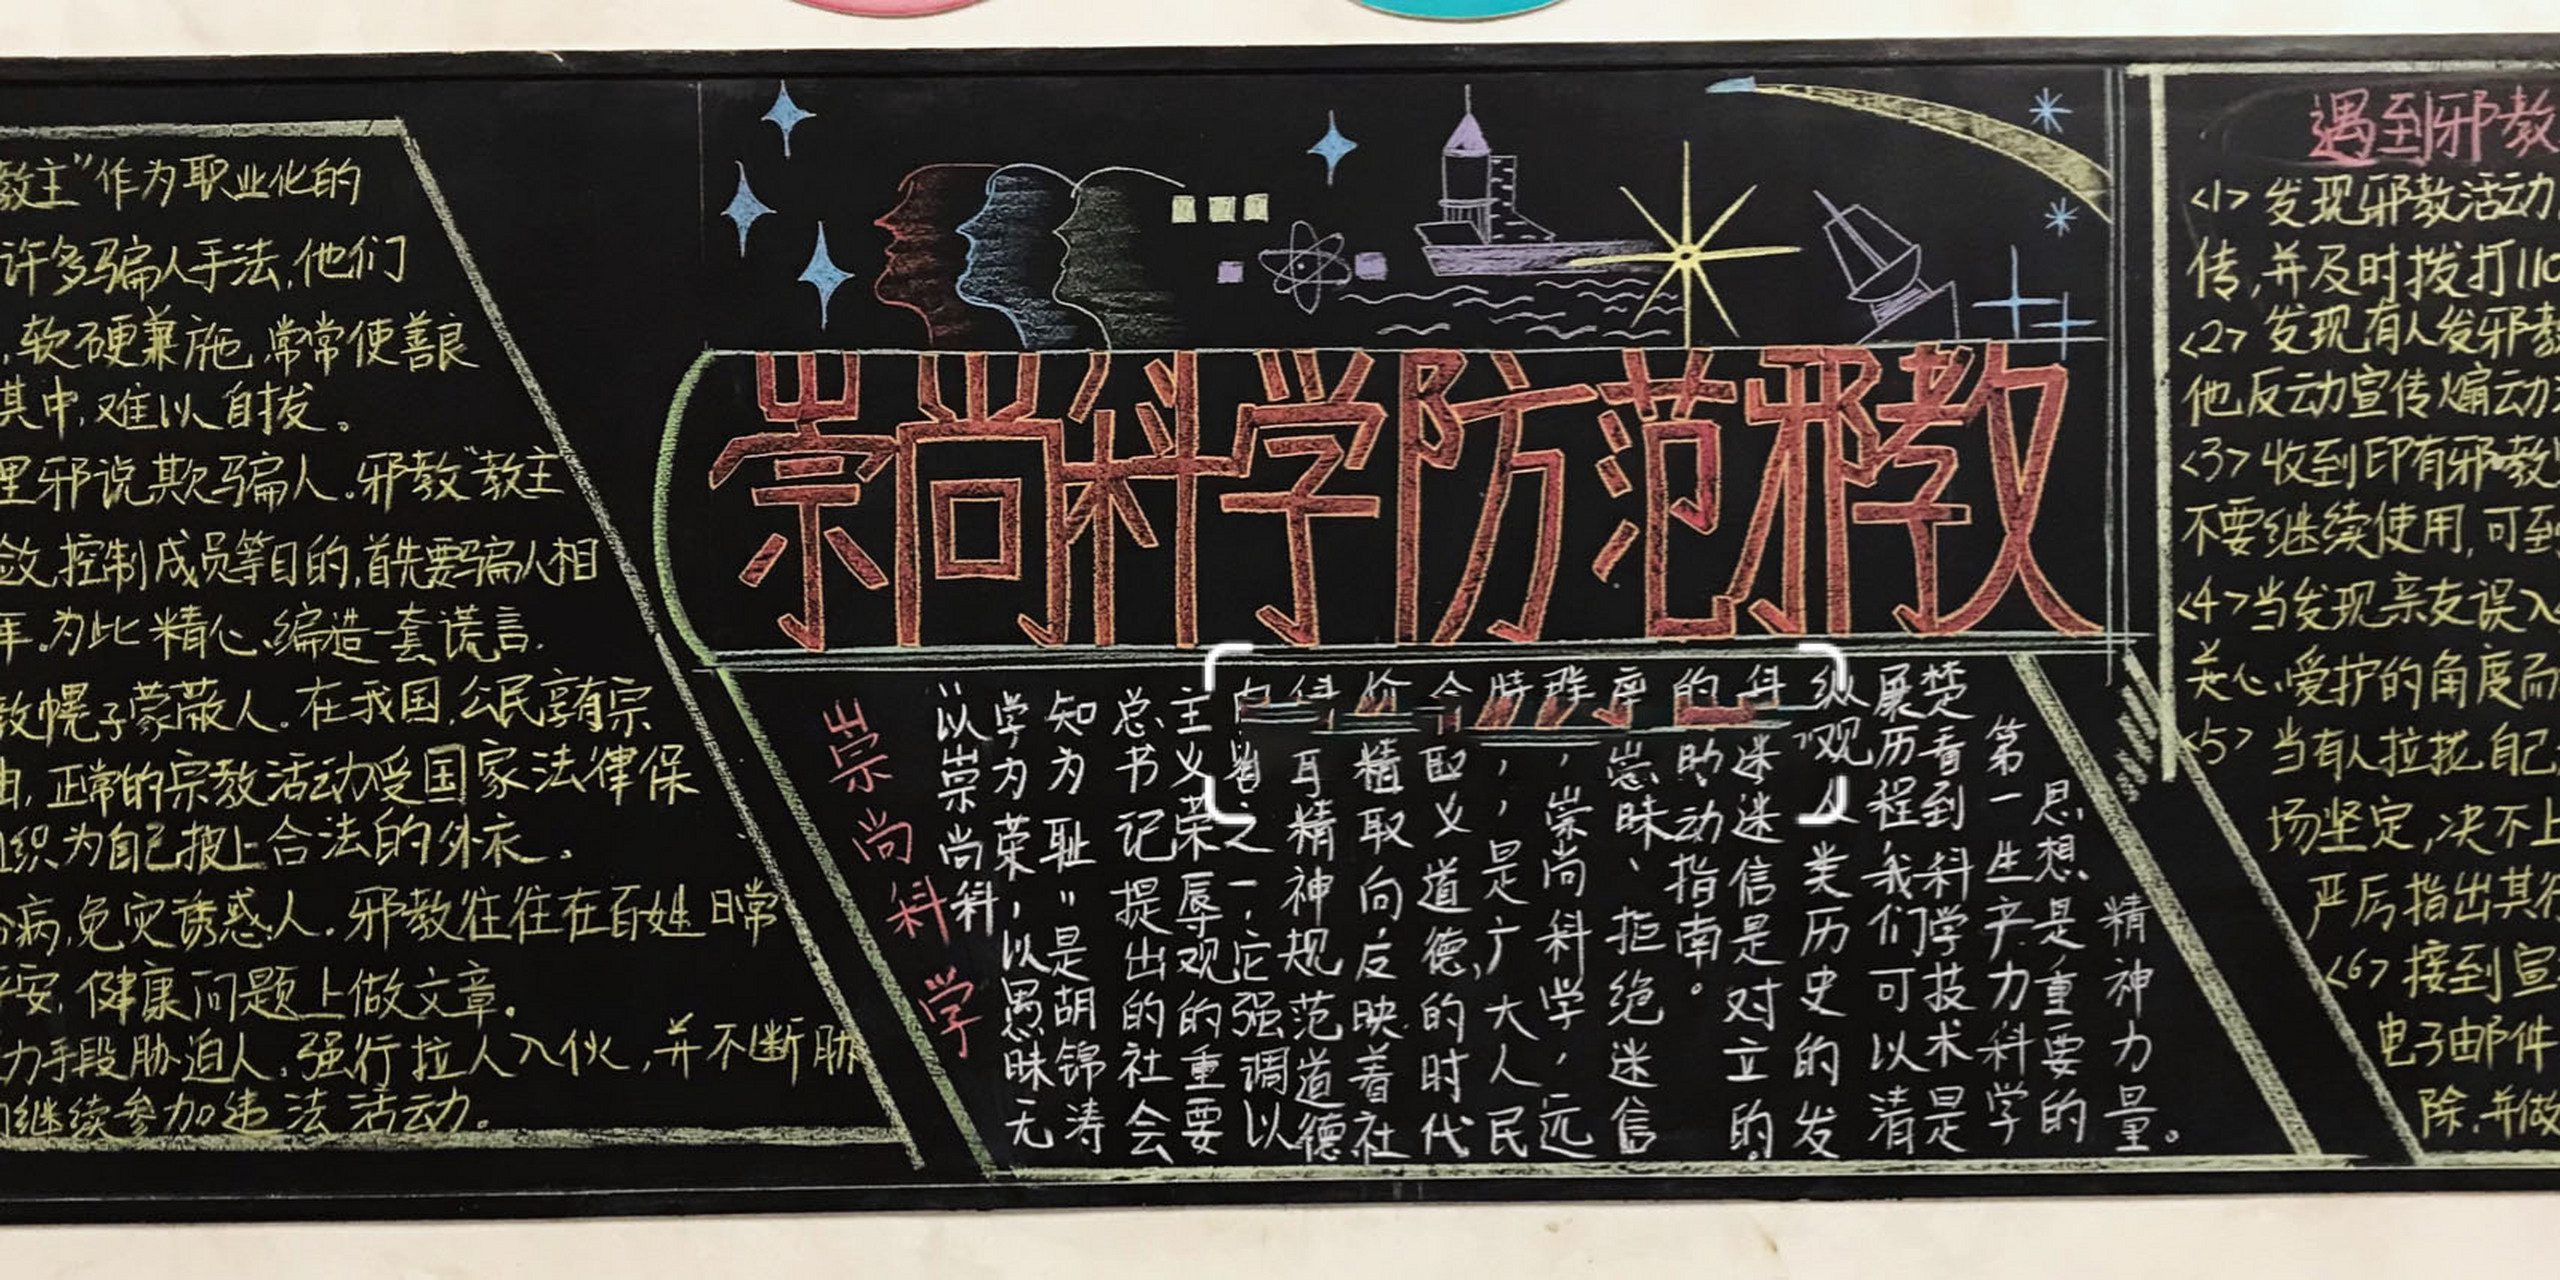 崇尚科学防范邪教
教主"作为职业化的
许多骗人手法,他们
,软硬兼施,常常使善良
其中,难以自拔。
理邪说欺骗人。邪教"教主
敛,控制成员等目的,首先要骗人相
年.为此精心编造一套谎言.
教幌子蒙蔽人。在我国,公民享有宗
由,正常的宗教活动受国家法律保
织为自己披上合法的外衣。
病,免灾诱惑人.邪教往往在百姓日常
安,健康问题上做文章。
力手段胁迫人.强行拉人入伙,并不断胁
继续参加违法活动.
崇尚科学
以崇尚科
学为荣,以愚昧无
知为耻"是胡锦涛
总书记提出的社会
主义荣辱观的重要
之一,它强调以
精神规范道德
取向反映着社
义道德的时代
是广大人民
,崇尚科学,远
昧、拒绝迷信
动指南。
迷信是对立的
纵观人类历史的发
展历程,我们可以清
楚看到科学技术是
第一生产力科学
思想是重要的
精神力量。
遇到邪教
<1>发现邪教活动
传,并及时拨打110
<2>发现有人发邪教
他反动宣传煽动
<3>收到印有邪教
不要继续使用,可到
<4>当发现亲友误入
关心、爱护的角度
<5>当有人拉拢自己
场坚定,决不上
严厉指出其行
<6>接到宣
电子邮件
除,并做